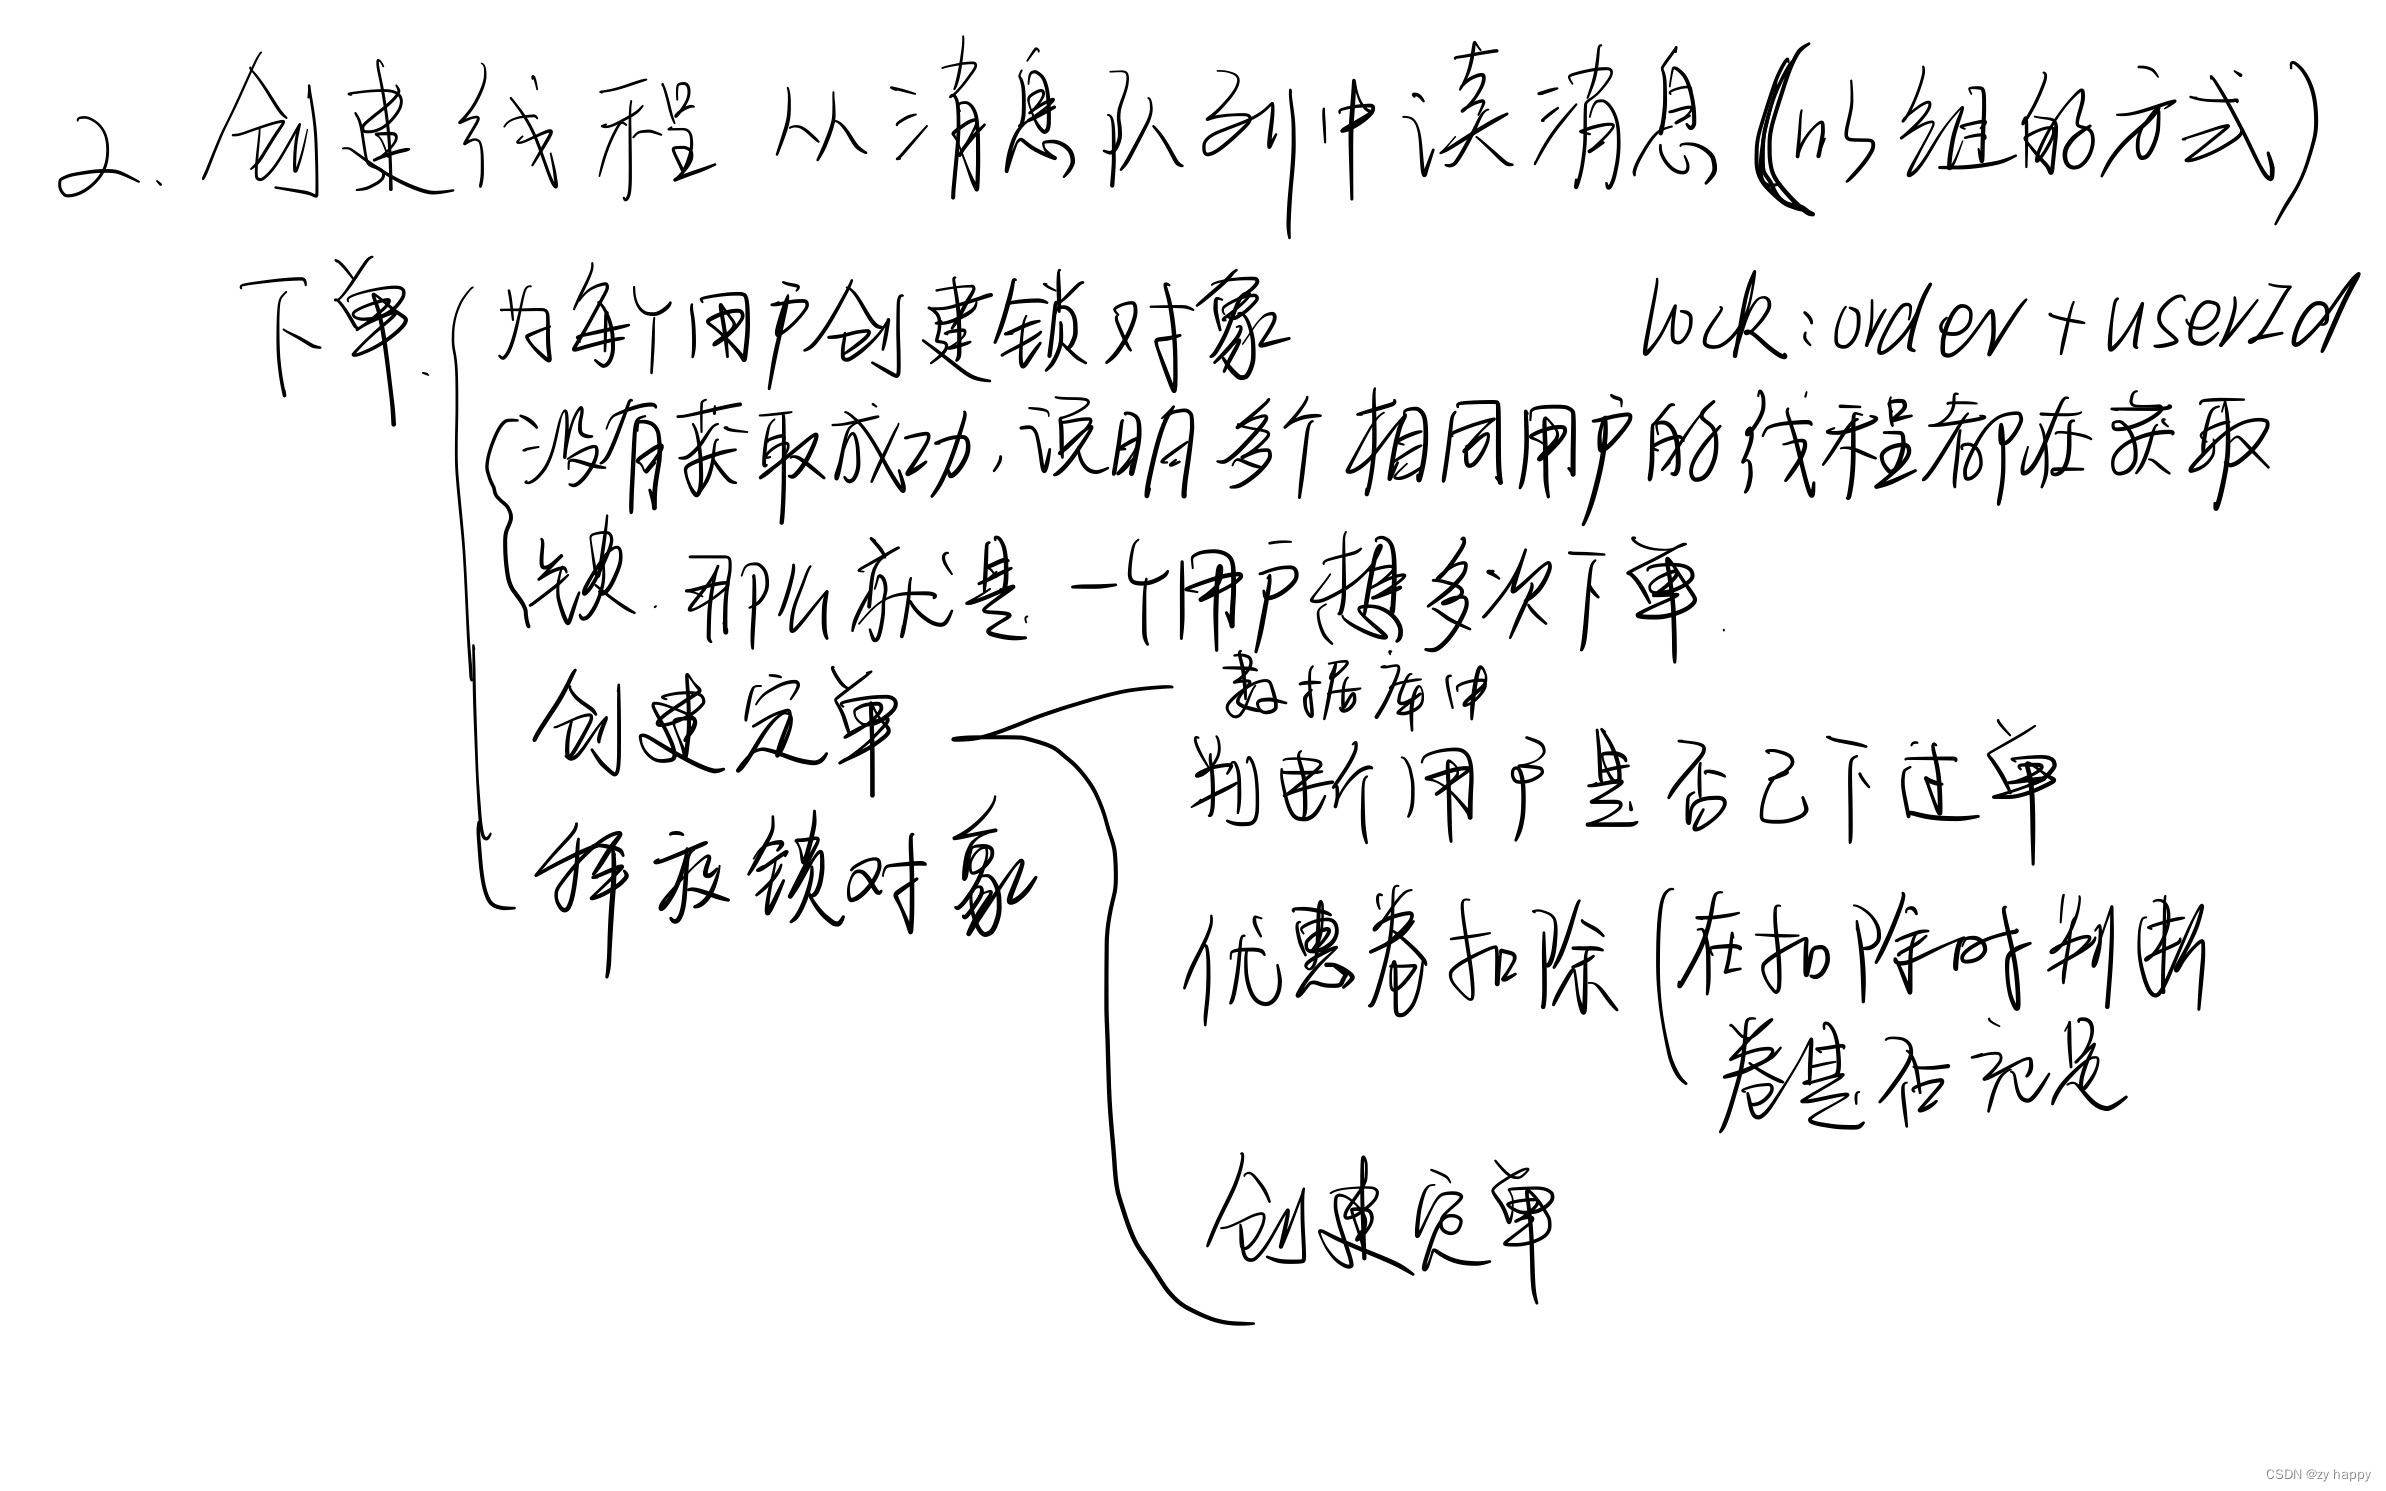 2. 创建线程 从消息队列中读消息(以组的方式)
下单. 为每个用户创建锁对象 lock:order+userId
没有获取成功,说明有多个相同用户的线程都在获取
锁. 那么就是一个用户想多次下单.
创建定单
数据库中
判断个用户是否已下过单
释放锁对象
优惠券扣除 在扣除时判断
券是否充足
创建定单
CSDN @zy happy